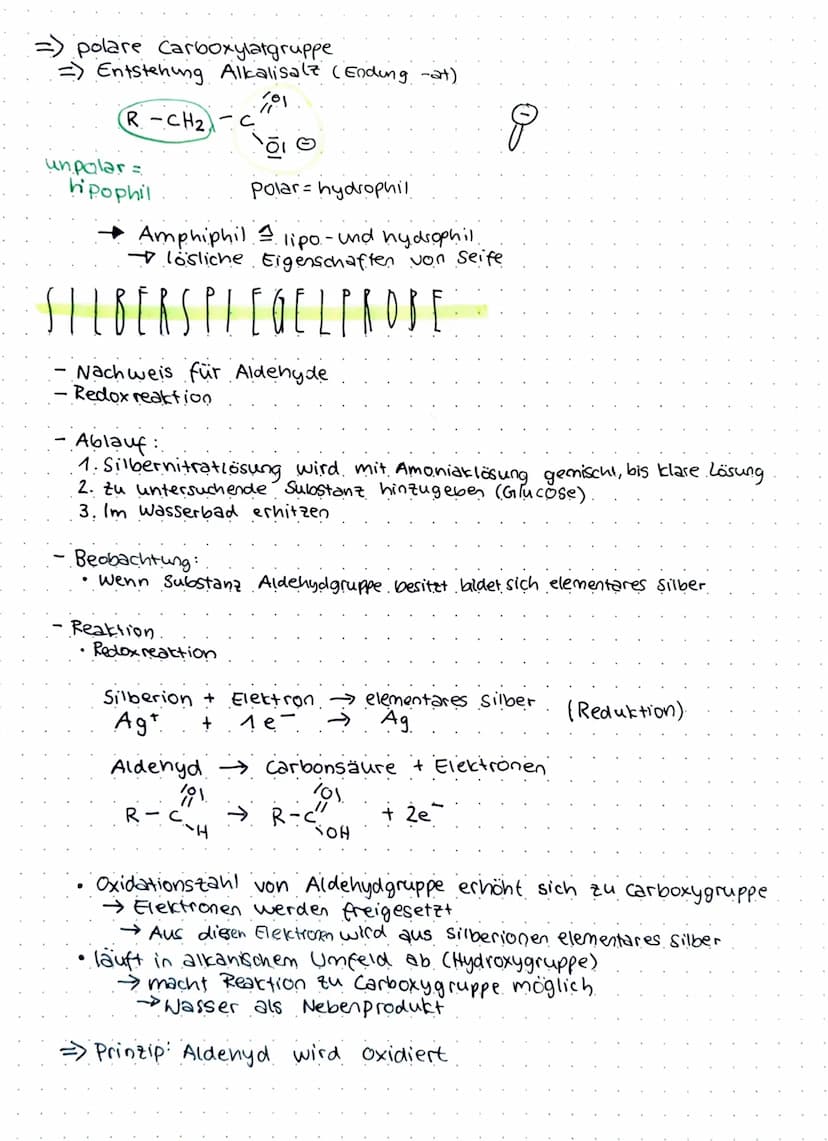 => polare Carboxylatgruppe
=> Entstehung Alkalisalz (Endung -at)
R -CH2 - C
|O|
|O| ⊖
unpolar =
lipophil
polar = hydrophil
→ Amphiphil ≙ lipo- und hydrophil
→ lösliche Eigenschaften von Seife
SILBERSPIEGELPROBE
- Nachweis für Aldehyde
- Redoxreaktion
- Ablauf:
1. Silbernitratlösung wird mit Amoniaklösung gemischt, bis klare Lösung
2. zu untersuchende Substanz hinzugeben (Glucose)
3. Im Wasserbad erhitzen
- Beobachtung:
• Wenn Substanz Aldehydgruppe besitzt bildet sich elementares Silber
- Reaktion
• Redoxreaktion
Silberion + Elektron → elementares Silber (Reduktion)
Ag+ + 1e- → Ag
Aldehyd → Carbonsäure + Elektronen
|O| |O|
R - C → R - C + 2e-
H OH
• Oxidationszahl von Aldehydgruppe erhöht sich zu Carboxygruppe
→ Elektronen werden freigesetzt
→ Aus diesen Elektronen wird aus Silberionen elementares Silber
• läuft in alkanischem Umfeld ab (Hydroxygruppe)
→ macht Reaktion zu Carboxygruppe möglich
→ Wasser als Nebenprodukt
=> Prinzip: Aldehyd wird oxidiert